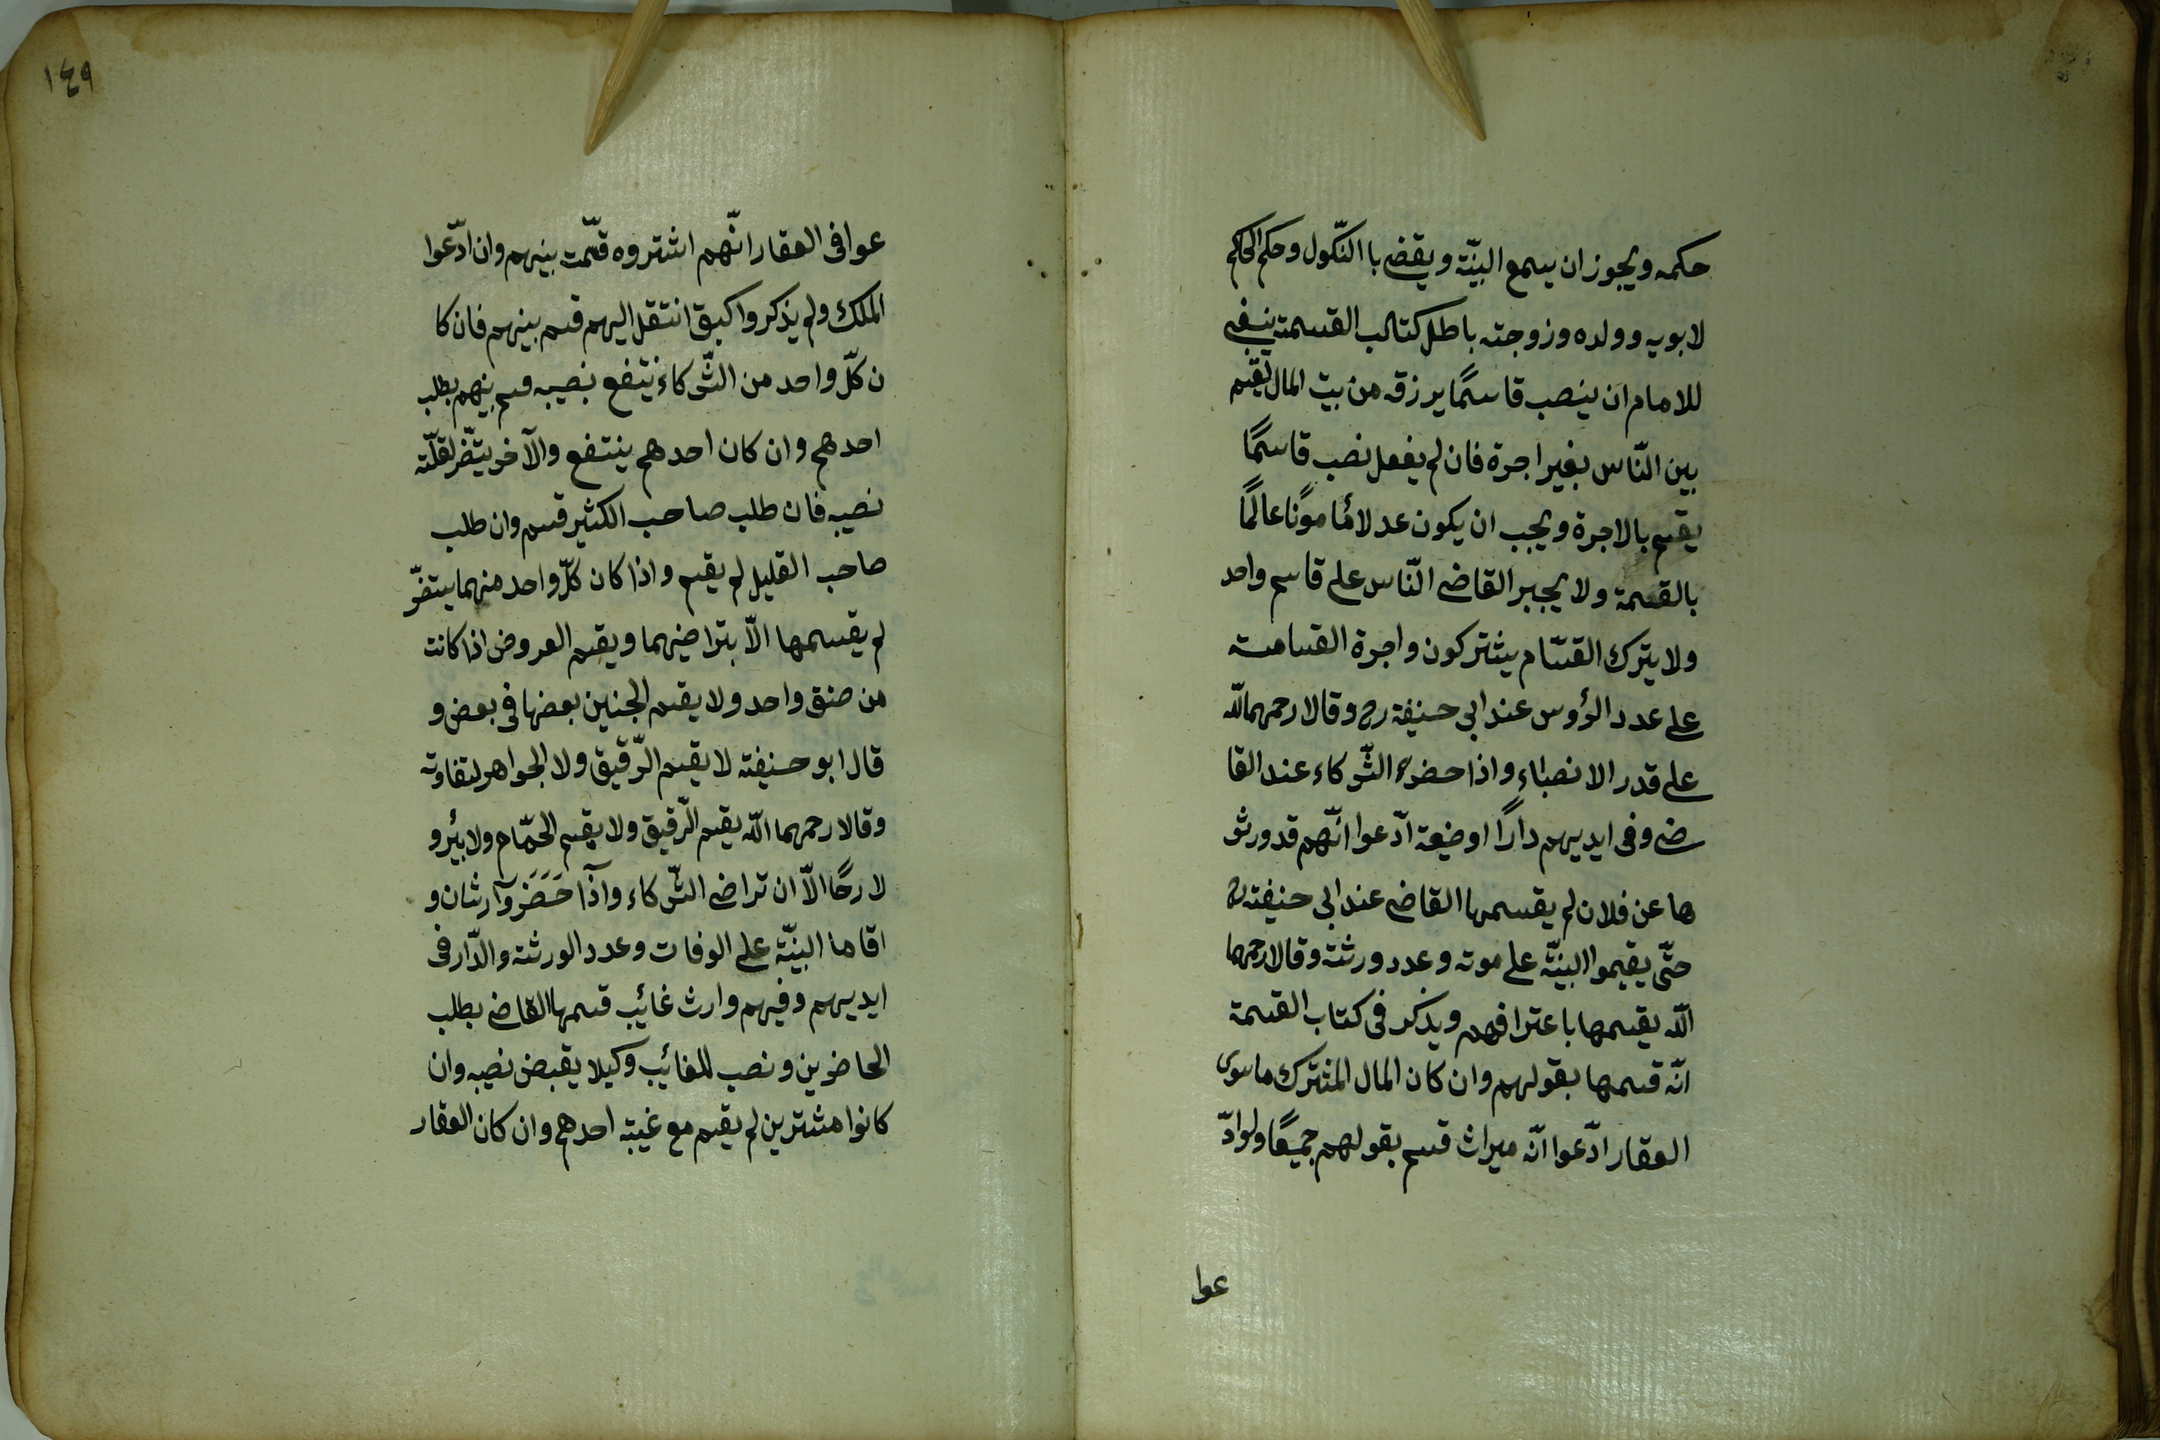 حكمه ويجوز ان يسمع البينّة ويقضى باالنّكول وحكم الحاكم
لابويه وولده وزوجته باطل كتاب القسمة ينبغى
للامام ان ينصب قاسمًا يرزقه من بيت المال يقسم
بين النّاس بغير اجرة فان لم يفعل نصب قاسمًا
يقسم بالاجرة ويجب ان يكون عدلا مأمونًا عالمًا
بالقسمة ولا يجبر القاضى النّاس على قاسم واحد
ولا يترك القسّام يشتركون واجرة القسامة
على عدد الرؤوس عند ابى حنيفة رح وقالا رحمهما الله
على قدر الانصباء واذا حضر الشّركاء عند القا
ضى وفى ايديهم دارًا او ضيعة ادّعوا انّهم قد ورثو
ها عن فلان لم يقسمها القاضى عند ابى حنيفة رح
حتّى يقيموا البينّة على موته وعدد ورثته وقالا رحمهما
الله يقسمها باعترافهم ويذكر فى كتاب القسمة
انّه قسمها بقولهم وان كان المال المشترك ما سوى
العقار ادّعوا انّه ميراث قسم بقولهم جميعًا ولو ادّ
عوا
١٤٩
عوا فى العقار انّهم اشتروه قسّمت بينهم وان ادّعوا
الملك ولم يذكروا كيق انتقل اليهم قسم بينهم فان كا
ن كلّ واحد من الشّركاء ينتفع بنصيبه قسم بينهم بطلب
احدهم وان كان احدهم ينتفع والآخر يتضّر لقلّته
نصيبه فان طلب صاحب الكثير قسم وان طلب
صاحب القليل لم يقسم واذا كان كلّ واحد منهما يستضّر
لم يقسمها الاّ بتراضيهما ويقسم العروض اذا كانت
من صنق واحد ولا يقسم الجنين بعضها فى بعض و
قال ابو حنيفة لا يقسم الرّقيق ولا الجواهر لتفاوته
وقالا رحمهما الله يقسم الرّقيق ولا يقسم الحمّام ولا بئر و
لا رحًا الاّ ان تراضى الشّركاء واذا حَضَرَ وارثان و
اقاما البينّة على الوفات وعدد الورثة والدّار فى
ايديهم وفيهم وارث غائب قسمها القاضى بطلب
الحاضرين ونصب للغائب وكيلا يقبض نصيبه وان
كانوا مشترين لم يقسم مع غيبة احدهم وان كان العقار